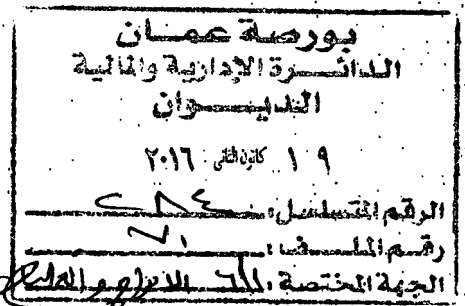 بورصة عمان
الدائرة الإدارية والمالية
الديوان
١٩ كانون الثاني ٢٠١٦
الرقم المتسلسل: ٢٨٤
رقم الملف:
الجهة المختصة: الادراج و